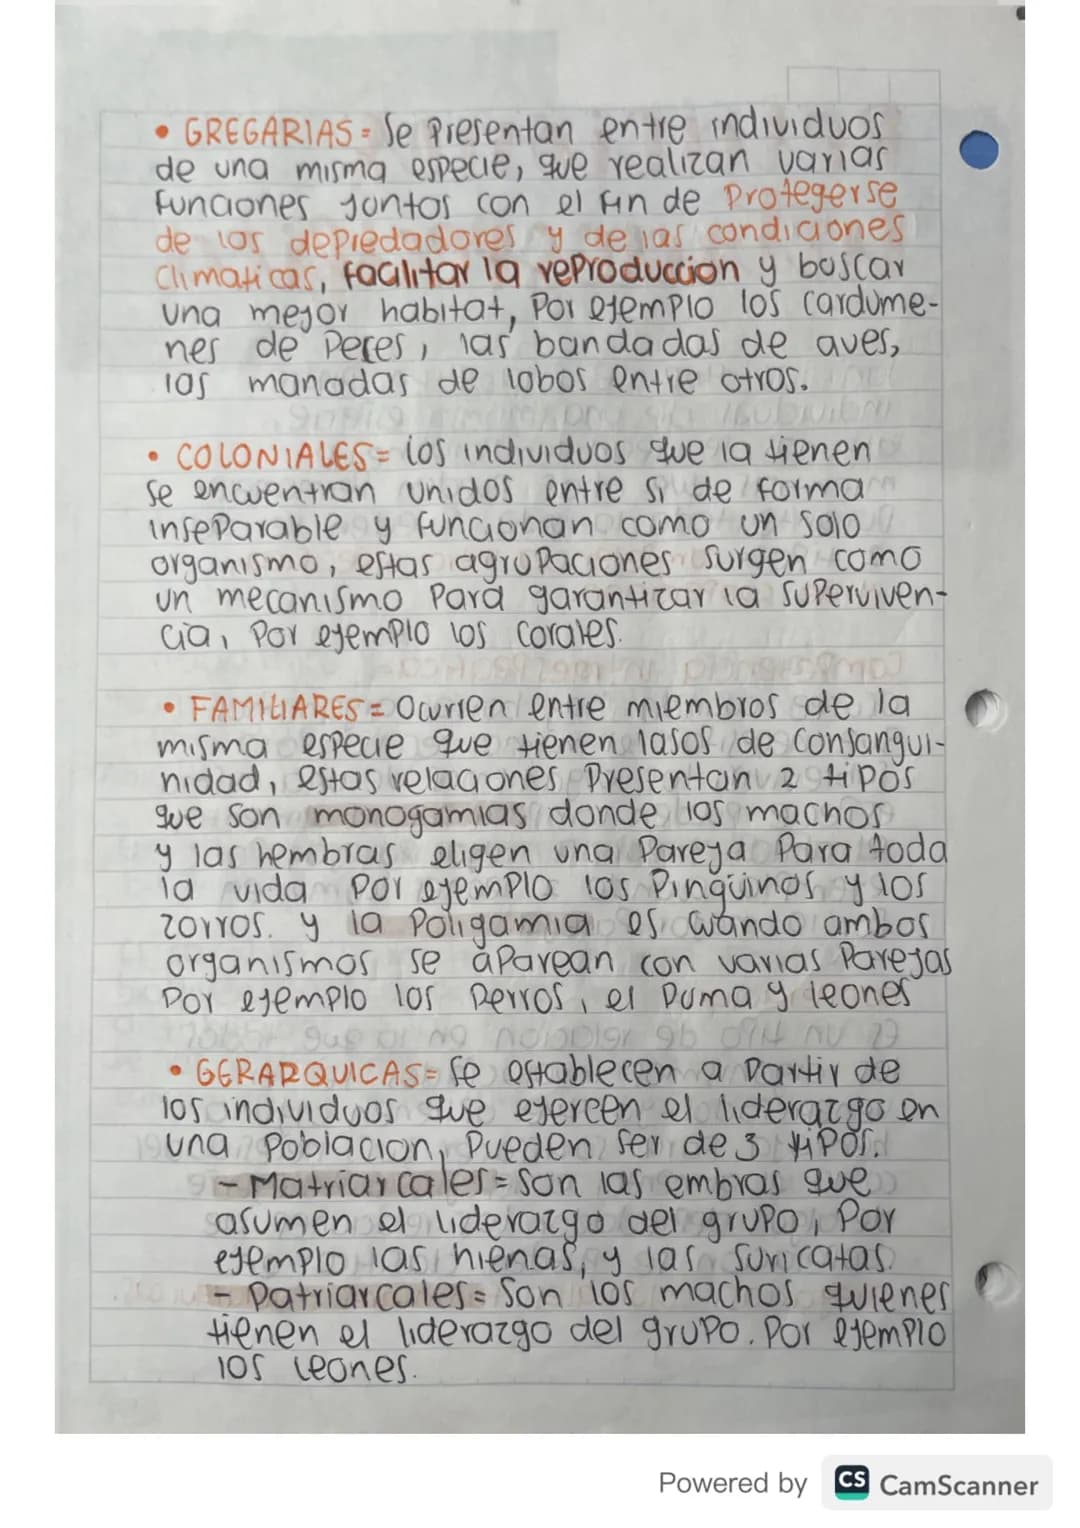 • GREGARIAS = Se Presentan entre individuos
de una misma especie, que realizan varias
funciones juntos con el fin de Protegerse
de los depredadores y de las condiciones
Climaticas, facilitar la reproduccion y buscar
una mejor habitat, Por ejemplo los cardume-
nes de Peces, las bandadas de aves,
las manadas de lobos entre otros.
• COLONIALES = los individuos que la tienen
se encuentran unidos entre si de forma
inseparable y funcionan como un solo
organismo, estas agrupaciones surgen como
un mecanismo Para garantizar la superviven-
cia, Por ejemplo los corales.
• FAMILIARES = Ocurren entre miembros de la
misma especie que tienen lasos de consangui-
nidad, estas relaciones Presentan 2 tipos
que son monogamias donde los machos
y las hembras eligen una Pareja Para toda
la vida Por ejemplo los Pingüinos y los
zorros. y la Poligamia es cuando ambos
organismos se aparean con varias Parejas
Por ejemplo los Perros, el Puma y leones
• GERARQUICAS = Se establecen a Partir de
los individuos que ejercen el liderazgo en
una Poblacion, Pueden ser de 3 tipos.
- Matriarcales = Son las embras que
asumen el liderazgo del grupo, Por
ejemplo las hienas, y las suricatas.
- Patriarcales = Son los machos quienes
tienen el liderazgo del grupo. Por ejemplo
los leones.
Powered by CS CamScanner